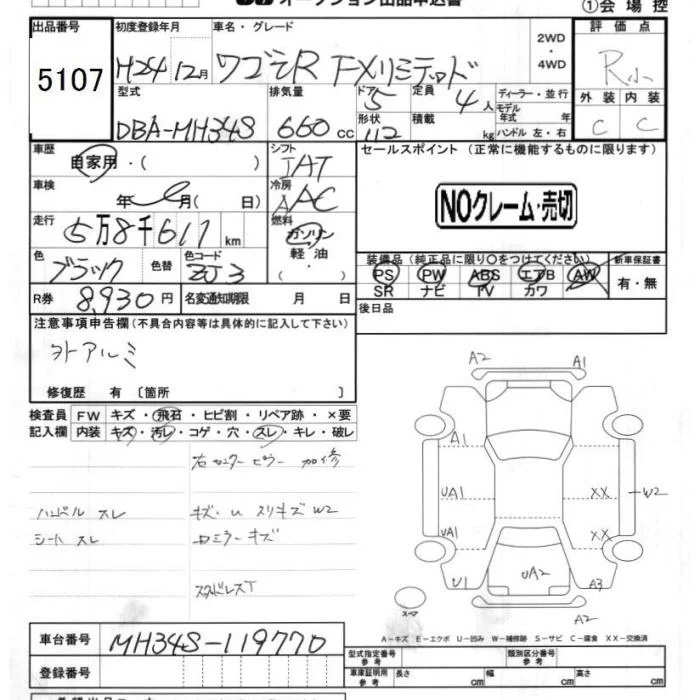 オークション出品申込書
①会場控
出品番号 初度登録年月 車名・グレード 評価点
5107 H24 12月 ワゴンR FXリミテッド 2WD・4WD R小
型式 排気量 ドア 5 定員 4人 ディーラー・並行 外装 内装
モデル年式 年
DBA-MH34S 660cc 形状 112 積載 kg ハンドル 左・右 C C
車歴 自家用・( ) シフト IAT セールスポイント (正常に機能するものに限ります)
車検 年 月( 日) 冷房 AAC NOクレーム・売切
走行 5万8千611 km 燃料 ガソリン
軽油・( )
色 ブラック 色替 色コード ZJ3
装備品(純正品に限り○をつけてください) 新車保証書
PS PW ABS エアB AW 有・無
SR ナビ TV カワ
R券 8,930円 名変通知期限 月 日 後日品
注意事項申告欄(不具合内容等は具体的に記入して下さい)
外アルミ
修復歴 有 〔箇所 〕
検査員 FW キズ・飛石・ヒビ割・リペア跡・×要
記入欄 内装 キズ・汚レ・コゲ・穴・スレ・キレ・破レ
右センターピラー 加修
ハンドル スレ キズ・U スリキズ W2
シート スレ ミラーキズ
スタッドレスT
A2 A1
A1
UA1 XX W2
UA1 XX
U1 UA2 A3
A2
スペア
A-キズ E-エクボ U-凹み W-補修跡 S-サビ C-腐食 XX-交換済
車台番号 MH34S-119770
登録番号
型式指定番号 参考 類別区分番号 参考
車庫証明用 参考 長さ cm 幅 cm 高さ cm